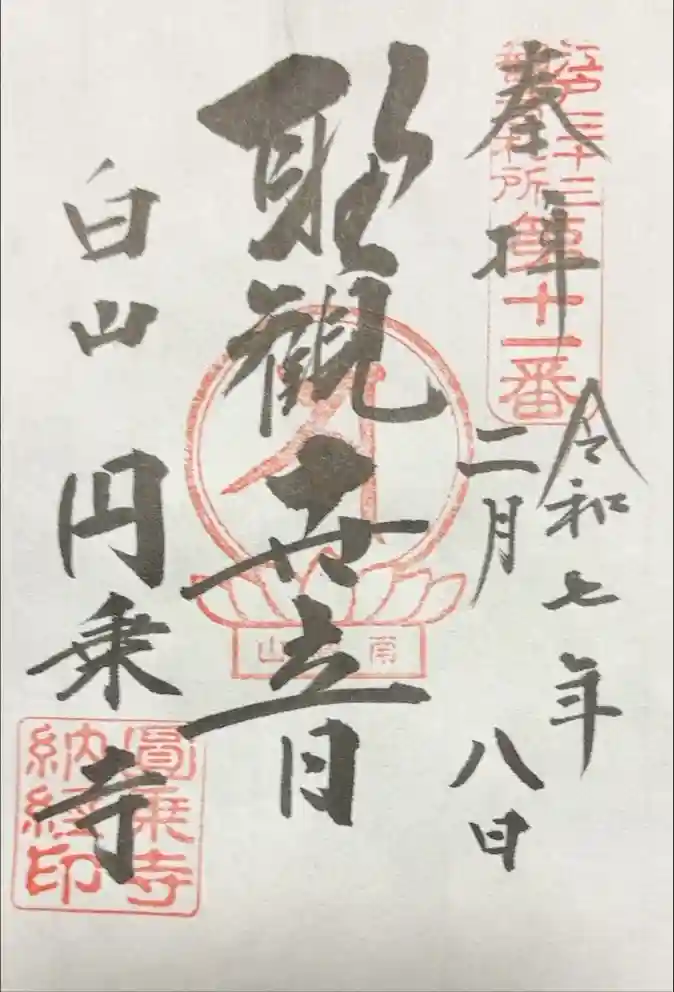 奉拝
江戸三十三
観音札所
第十一番
令和七年
二月八日
聖観世音
白山
円乗寺
圓乗寺
納経印